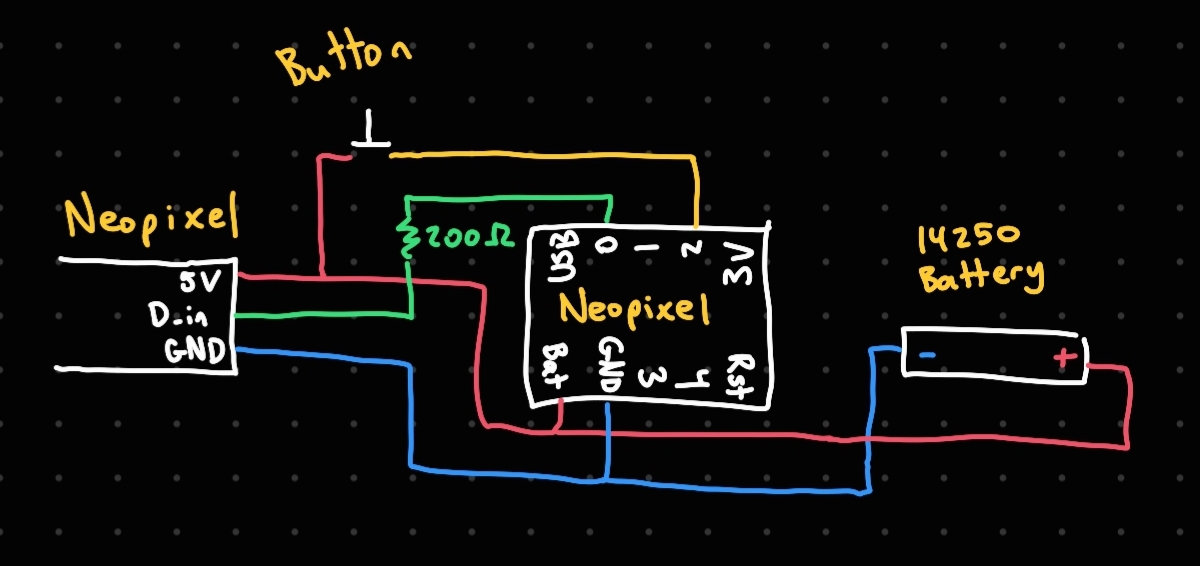 Button
Neopixel
5V
D-in
GND
200Ω
BSU 0 1 2 3V
Neopixel
Bat GND 3 4 Rst
14250
Battery
- +